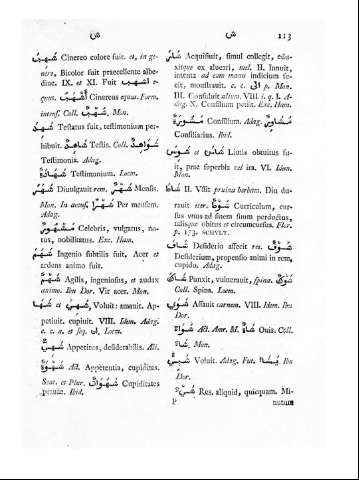 ش ش 113
شَهَبَ Cinereo colore fuit. et, in ge-
nere, Bicolor fuit praecellente albe-
dine. IX. et XI. Fuit اشهب e-
quus. أَشْهَب Cinereus equus. Form.
intens. Coll. شُهْب. Mon.
شَهِدَ Testatus fuit, testimonium per-
hibuit. شَاهِد Testis. Coll. شَوَاهِد
Testimonia. Adag.
شَهَادَة Testimonium. Locm.
شَهَرَ Divulgavit rom. شَهْر Mensis.
Mon. In accus. شَهْرًا Per mensem.
Adag.
مَشْهُور Celebris, vulgatus, no-
tus, nobilitatus. Exc. Ham.
شَهُمَ Ingenio subtili fuit. Acer et
ardens animo fuit.
شَهْم Agilis, ingeniosus, et audax
animo. Ibn Dor. Vir acer. Mon.
شَهَا et شَهِيَ, Voluit: amavit. Ap-
petiuit. cupiuit. VIII. Idem. Adag.
c. c. a. et seq. ان. Locm.
شَهِيّ Appetitus, desiderabilis. Ali.
شَهْوَة Act. Appetentia, cupiditas.
Sent. et Plur. شَهَوَات Cupiditates
pravae. Ibid.
شَارَ Acquisiuit, simul collegit, edu-
xitque ex alueari, mel. II. Innuit,
intenta ad eam manu indicium fe-
cit, monstrauit. c. c. الى p. Mon.
III. Consuluit alium. VIII. i. q. I. A-
dag. X. Consilium petiit. Exc. Ham.
مَشُورَة Consilium. Adag. مُشَاوِر
Consiliarius. Ibid.
شَوِسَ et شَاسَ Limis obtuitus fu-
it, prae superbia vel ira. VI. Idem.
Mon.
شَاطَ II. Vssit pruina herbam. Diu du-
rauit iter. شَوْط Curriculum, cur-
sus vnus ad finem suum perductus,
talisque obitus et circumcursus. Flor.
p. 173. SCHVLT.
شَافَ Desiderio affecit res. شَوْق
Desiderium, propensio animi in rem,
cupido. Adag.
شَاكَ Punxit, vulnerauit, spina. شَوْك
Coll. Spina. Locm.
شَوَى Assauit carnem. VIII. Idem. Ibn
Dor.
شَوَاة Act. Amr. M. شَاة Ouis. Coll.
شَاء. Mon.
شَاءَ Voluit. Adag. Fut. يَشَاء. Ibn
Dor.
شَيْء Res. aliquid, quicquam. Mi-
P nutum